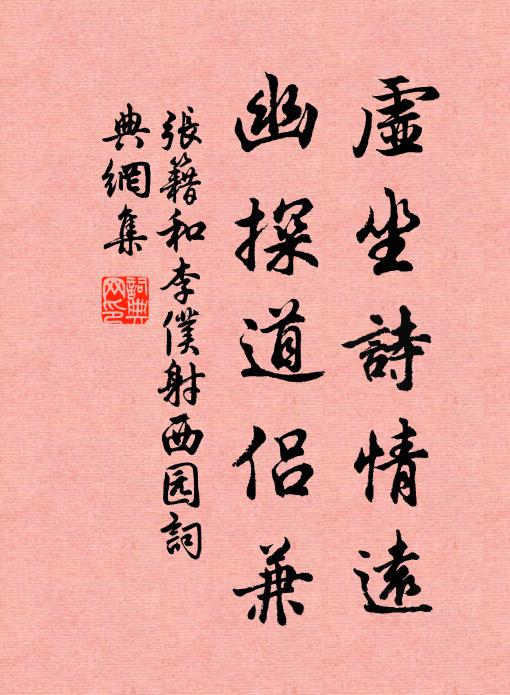 虛坐詩情遠
幽探道侶兼
張籍和李僕射西园詞
典網集
詞典
网印